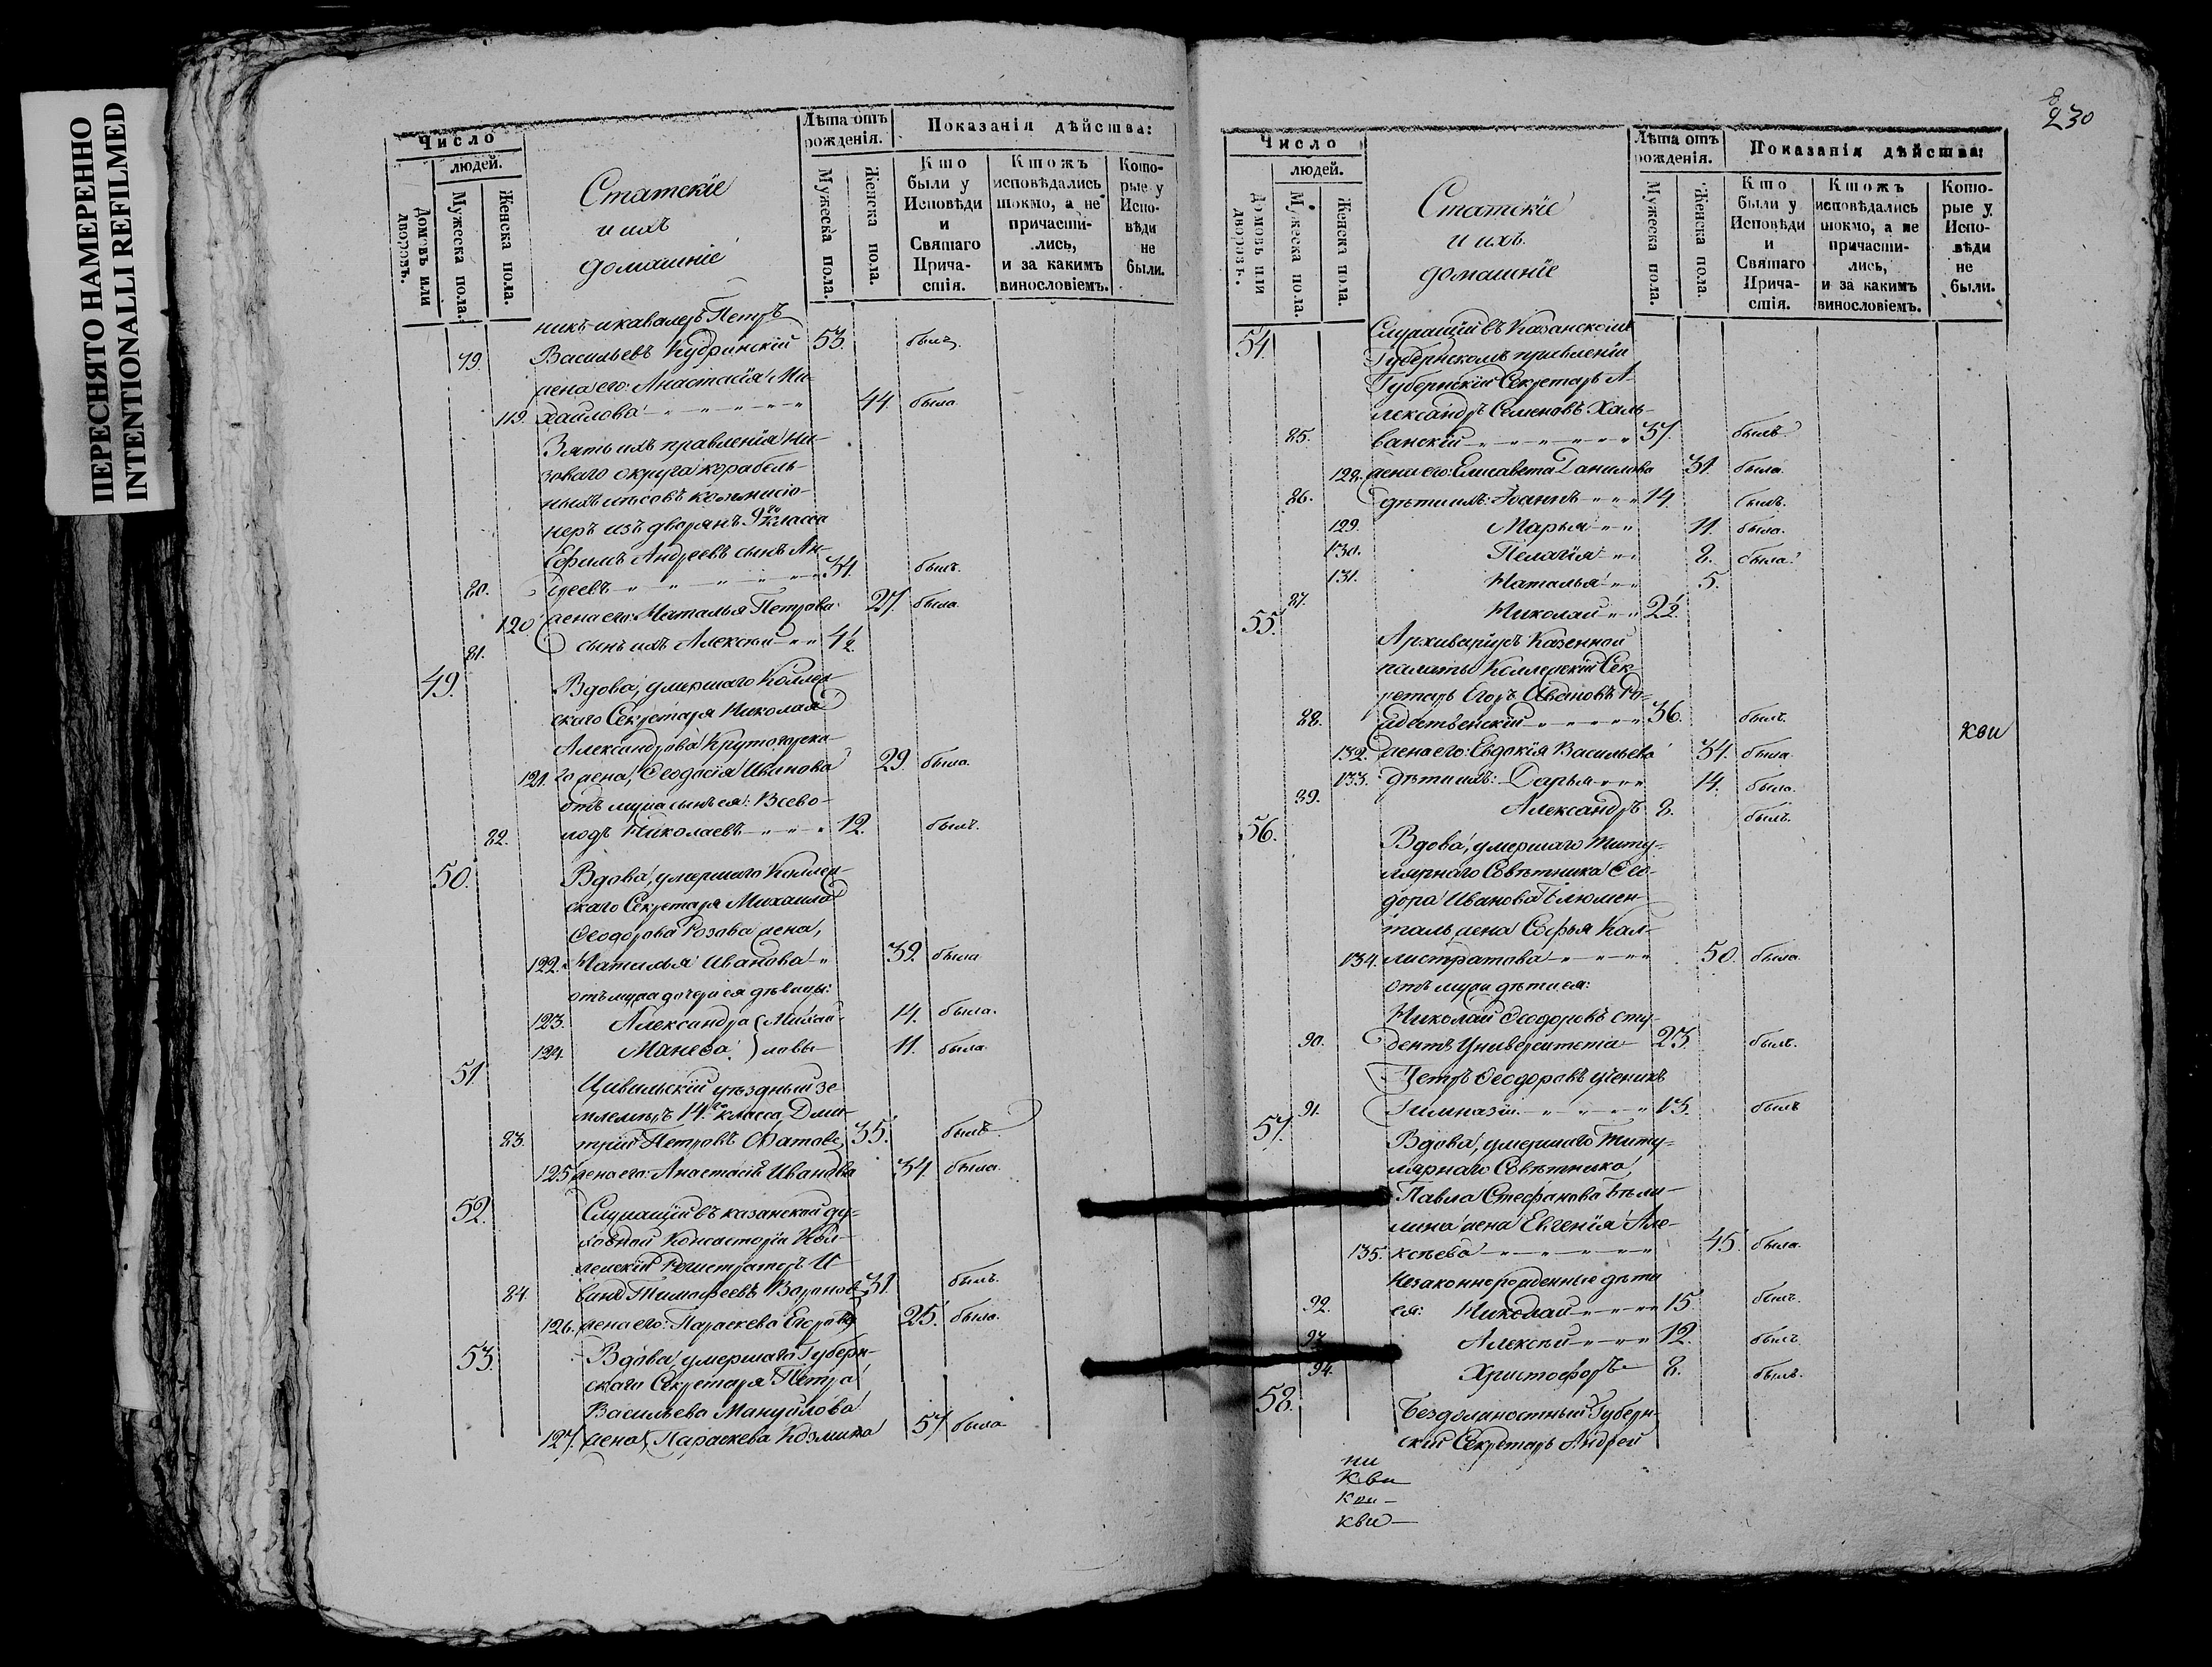 ПЕРЕСНЯТО НАМЕРЕННО
INTENTIONALLI REFILMED
Число
людей.
Домовъ или дворовъ.
Мужеска пола.
Женска пола.
Статскіе
и ихъ
домашніе
Лѣта отъ рожденія.
Мужеска пола.
Женска пола.
Показанія дѣйства:
Кто были у Исповѣди и Святаго Прича-стія.
Ктожъ исповѣдались токмо, а не причасти-лись, и за какимъ винословіемъ.
Кото-рые у Испо-вѣди не были.
никъ и кавалеръ Петръ
79. Васильевъ Кудринскій 53. былъ.
жена его: Анастасія Ми-
119. хайлова 44. была
Зять ихъ правленія ни-
зоваго округа корабель-
ныхъ лѣсовъ коммисіо-
неръ изъ дворянъ 9го класса
Ефимъ Андреевъ сынъ Ан-
80. дреевъ 34. былъ.
120 жена его: Наталья Петрова 27. была
81. сынъ ихъ Алексѣй 4½
49. Вдова, умершаго Коллеж-
скаго Секретаря Николая
Александрова Крутогорска-
121. го жена, Ѳеодосія Иванова 29. была.
отъ мужа сынъ ея: Всево-
82. лодъ Николаевъ 12. былъ.
50. Вдова, умершаго Коллеж-
скаго Секретаря Михаила
Ѳеодорова Розова жена,
122. Наталья Иванова 39. была
отъ мужа дочери ея дѣвицы:
123. Александра (Михай- 14. была.
124. Манеѳа ) ловы 11. была
51. Цивильскій уѣздный зе-
млемѣръ 14.го класса, Дми-
83. трій Петровъ 35. былъ
125 жена его: Анастасія Иванова 34 была.
52. Служащій въ казанской ду-
ховной Консисторіи Кол-
лежскій Регистраторъ И-
84. ванъ Тимофеевъ Вороновъ 31. былъ.
126. жена его: Параскева Егорова 25. была.
53. Вдова, умершаго Губерн-
скаго Секретаря Петра
Васильева Мануйлова
127. жена, Параскева Козмина 57 была
230
Число
людей.
Домовъ или дворовъ.
Мужеска пола.
Женска пола.
Статскіе
и ихъ
домашніе
Лѣта отъ рожденія.
Мужеска пола.
Женска пола.
Показанія дѣйства:
Кто были у Исповѣди и Святаго Прича-стія.
Ктожъ исповѣдались токмо, а не причасти-лись, и за какимъ винословіемъ.
Кото-рые у Испо-вѣди не были.
54. Служащій въ Казанскомъ
Губернскомъ правленіи
Губернскій Секретарь А-
лександръ Семеновъ Халь-
85. ванскій 37. былъ
128. жена его: Елисавета Данилова 31. была.
86. дѣти ихъ: Іоаннъ 14. былъ.
129. Марья 11. была.
130. Пелагія 8. была.
131. Наталья 5.
87. Николай 2½.
55. Архиваріусъ Казенной
палаты Коллежскій Сек-
ретарь Егоръ Ивановъ Ро-
88. ждественскій 36. былъ.
кви
132. жена его: Евдокія Васильева 34. была
133. дѣти ихъ: Дарья 14. была.
89. Александръ 8. былъ.
56. Вдова, умершаго Титу-
лярнаго Совѣтника Ѳео-
дора Иванова Блюмен-
таль жена Софья Кал-
134. листратова 50. была
отъ мужа дѣти ея:
Николай Ѳеодоровъ сту-
90. дентъ Университета 23. былъ.
Петръ Ѳеодоровъ ученикъ
91. Гимназіи 13. былъ
57. Вдова, умершаго Титу-
лярнаго Совѣтника,
Павла Стефанова
жена Евгенія Але-
135. ксѣева 45. была.
Незаконнорожденные дѣти
92. ея: Николай 15. былъ.
93. Алексѣй 12. былъ
94. Христофоръ 8. былъ.
58. Бездолжностный Губерн-
скій Секретарь Андрей
ни
кви
кви